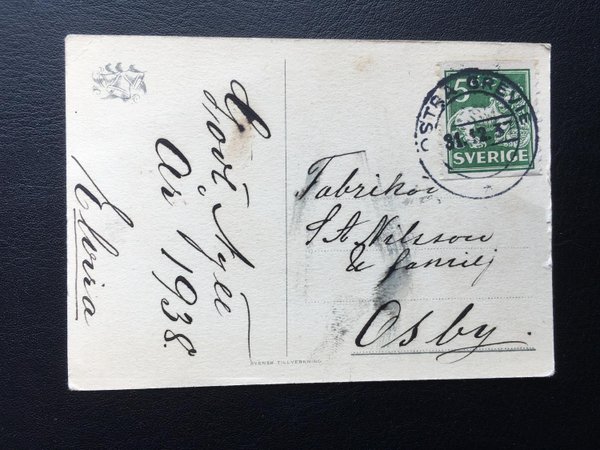 Gott Nytt
År 1938.
Elvira
SVENSK TILLVERKNING
5
SVERIGE
ÖSTRA GREVIE
31.12.3
Fabrikör
S A Nilsson
& familj
Osby.